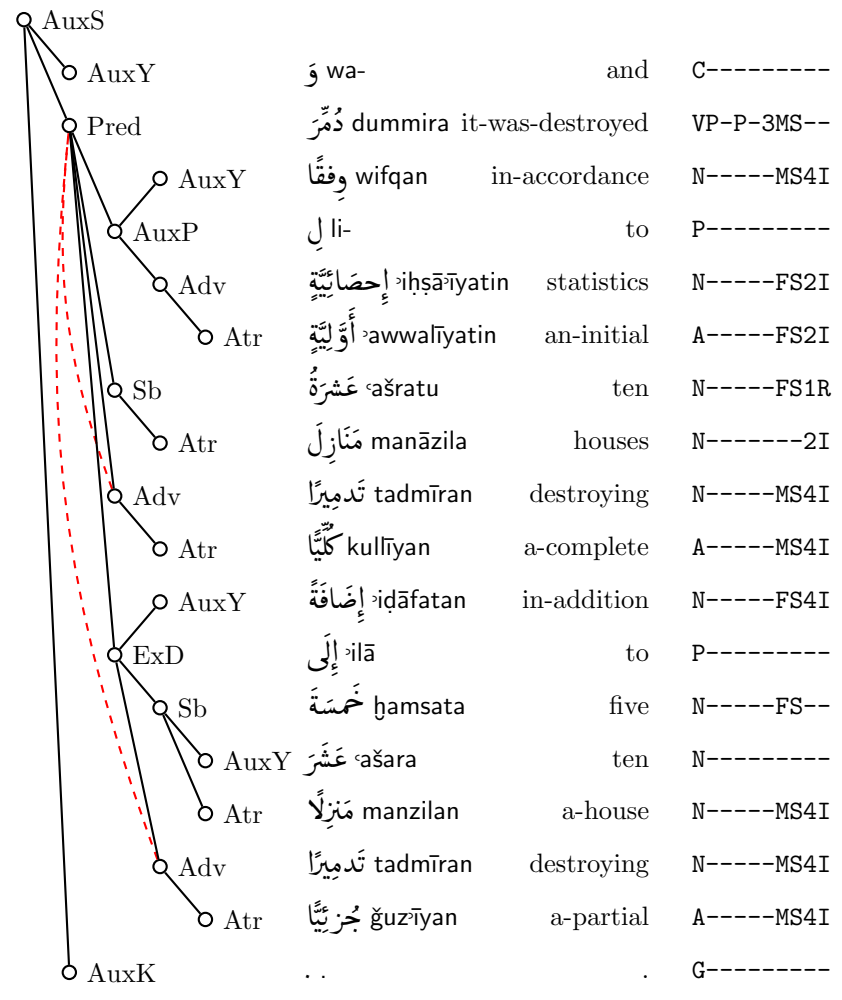 AuxS
AuxY وَ wa- and C---------
Pred دُمِّرَ dummira it-was-destroyed VP-P-3MS--
AuxY وِفقًا wifqan in-accordance N-----MS4I
AuxP لِ li- to P---------
Adv إِحصَائِيَّةٍ ʾiḥṣāʾīyatin statistics N-----FS2I
Atr أَوَّلِيَّةٍ ʾawwalīyatin an-initial A-----FS2I
Sb عَشرَةُ ʿašratu ten N-----FS1R
Atr مَنَازِلَ manāzila houses N-------2I
Adv تَدمِيرًا tadmīran destroying N-----MS4I
Atr كُلِّيًّا kullīyan a-complete A-----MS4I
AuxY إِضَافَةً ʾiḍāfatan in-addition N-----FS4I
ExD إِلَى ʾilā to P---------
Sb خَمسَةَ ḫamsata five N-----FS--
AuxY عَشَرَ ʿašara ten N---------
Atr مَنزِلًا manzilan a-house N-----MS4I
Adv تَدمِيرًا tadmīran destroying N-----MS4I
Atr جُزئِيًّا ǧuzʾīyan a-partial A-----MS4I
AuxK . . . G---------